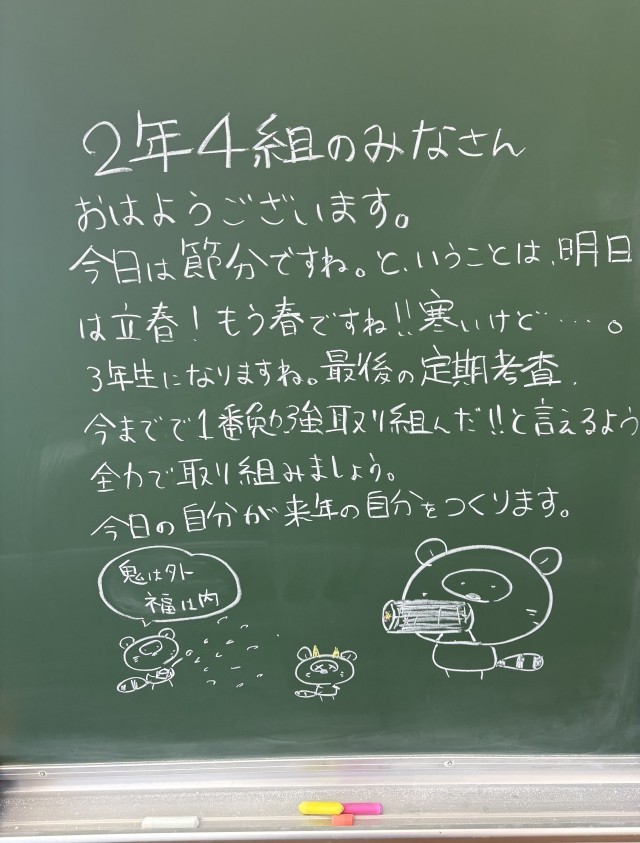 2年4組のみなさん
おはようございます。
今日は節分ですね。と、いうことは、明日
は立春！もう春ですね!!寒いけど……。
3年生になりますね。最後の定期考査、
今までで1番勉強取り組んだ!!と言えるよう
全力で取り組みましょう。
今日の自分が来年の自分をつくります。
鬼は外
福は内